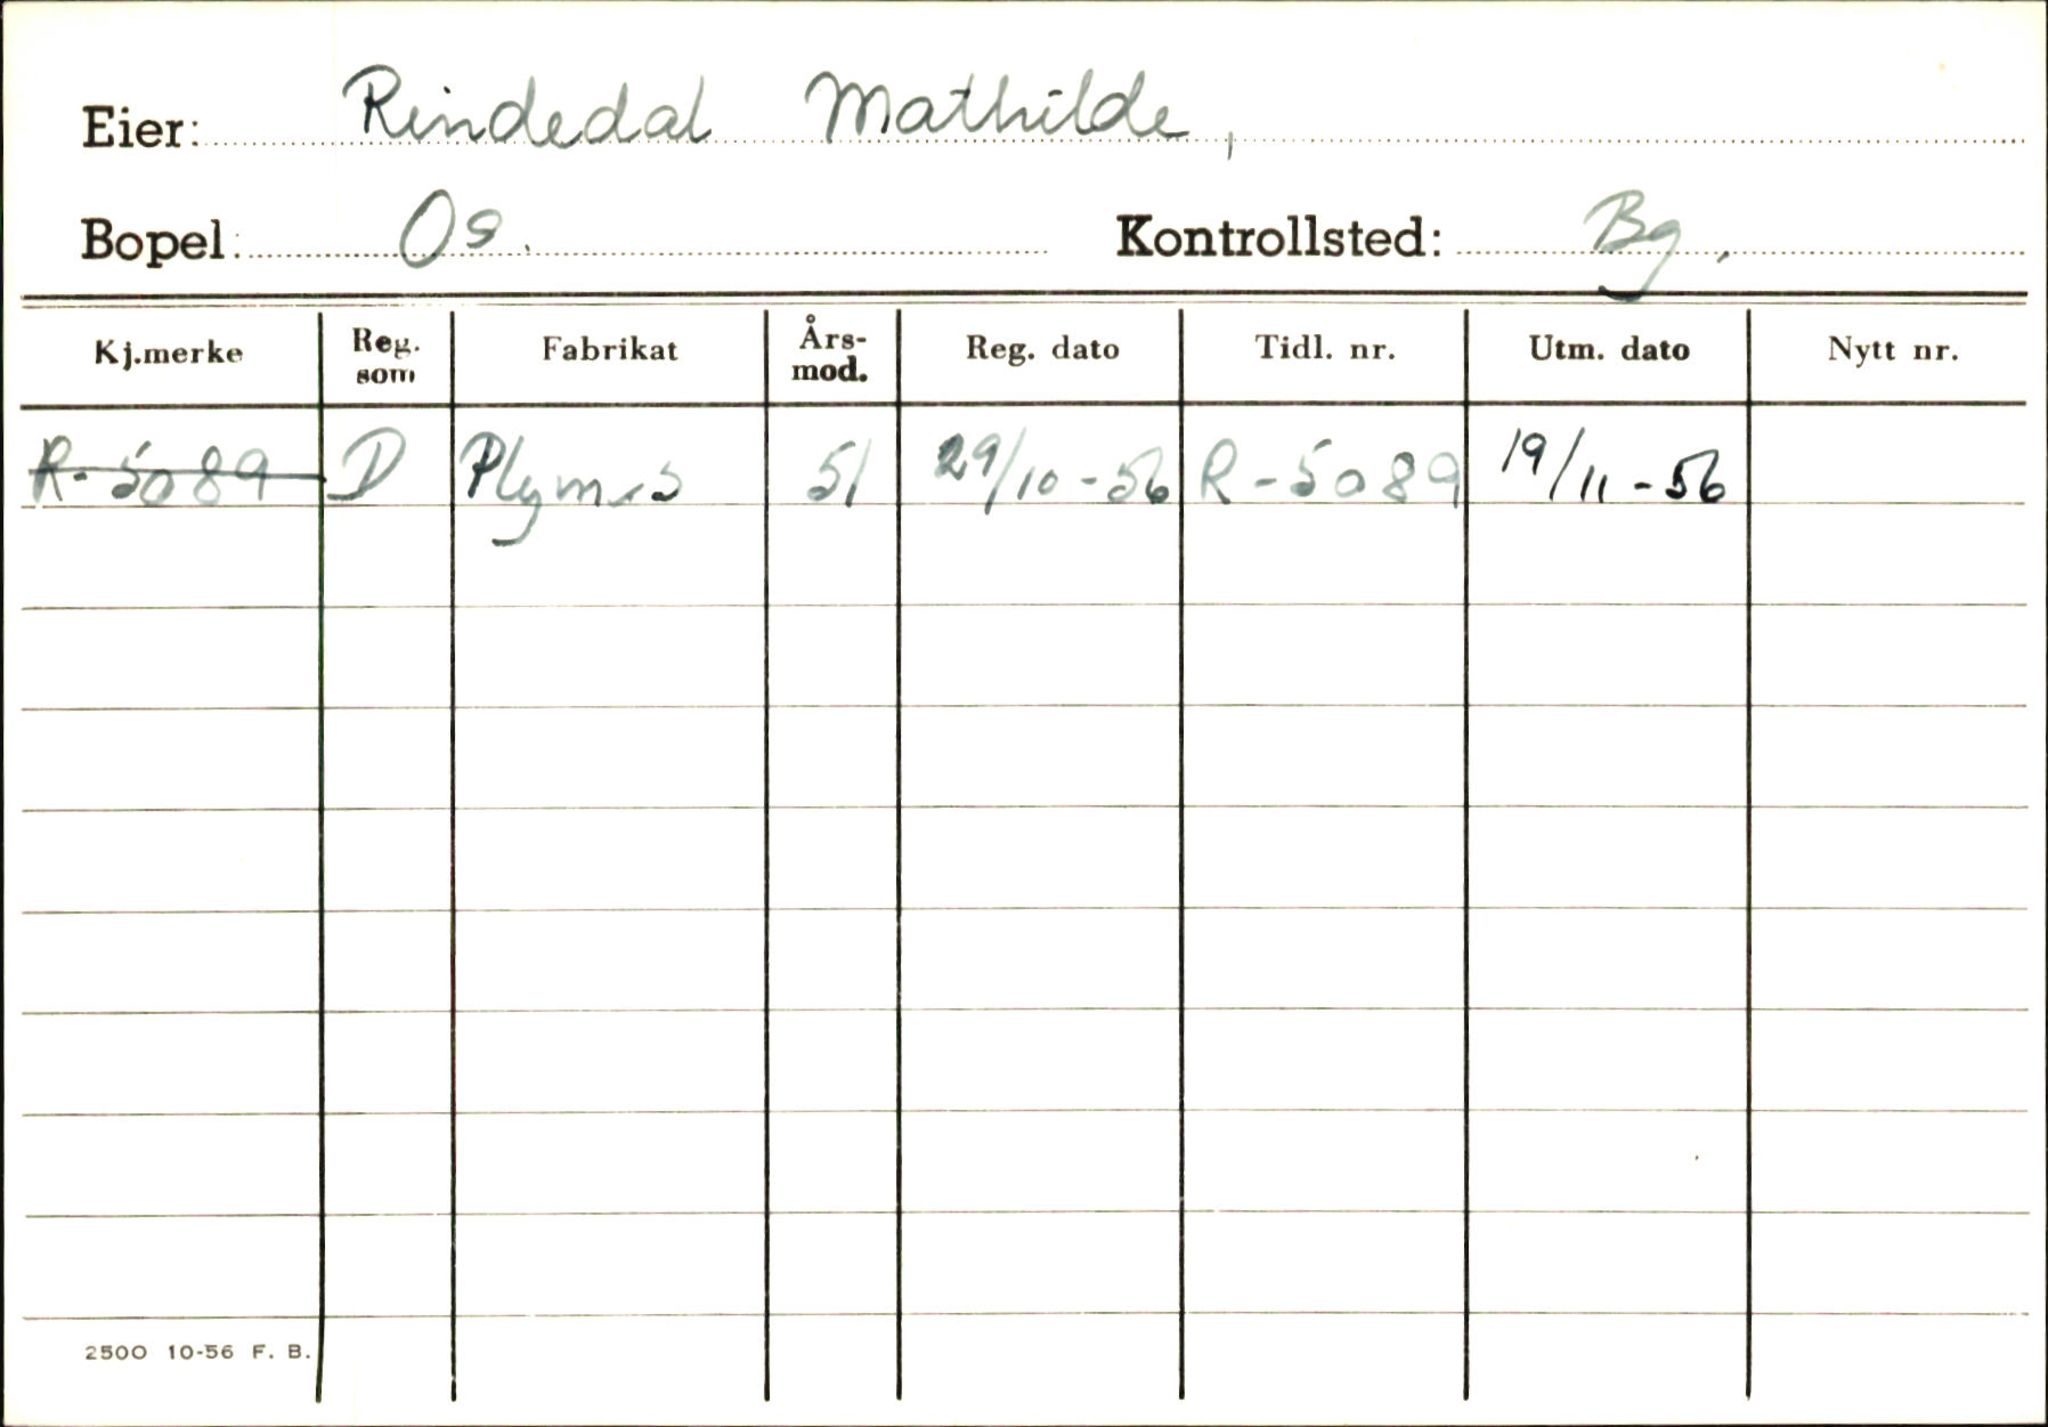 Eier: Rindedal Mathilde,
Bopel: Os. Kontrollsted: Bg.
Kj.merke Reg. som Fabrikat Års-mod. Reg. dato Tidl. nr. Utm. dato Nytt nr.
R-5089 D 51 29/10-56 R-5089 19/11-56
2500 10-56 F. B.